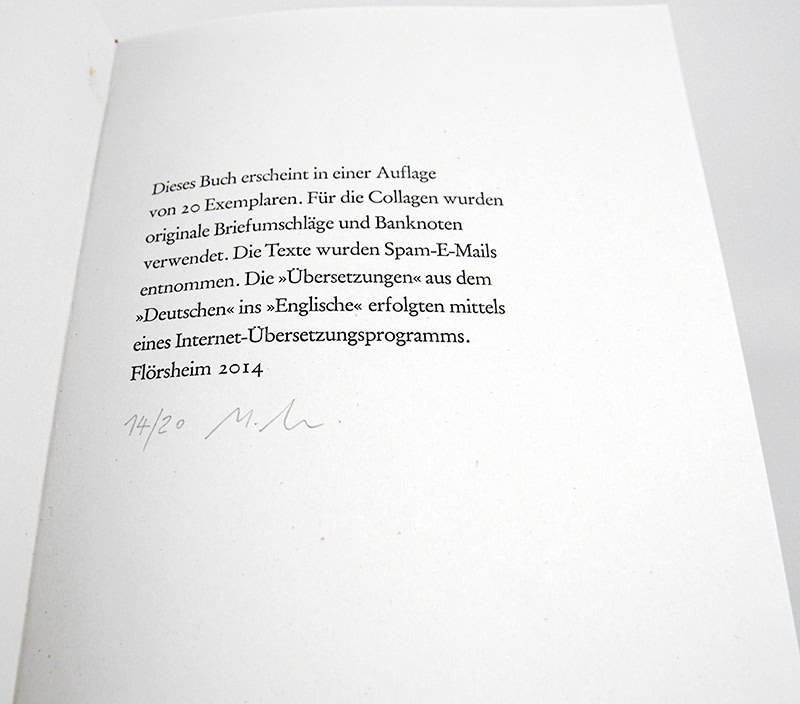 Dieses Buch erscheint in einer Auflage
von 20 Exemplaren. Für die Collagen wurden
originale Briefumschläge und Banknoten
verwendet. Die Texte wurden Spam-E-Mails
entnommen. Die »Übersetzungen« aus dem
»Deutschen« ins »Englische« erfolgten mittels
eines Internet-Übersetzungsprogramms.
Flörsheim 2014
14/20